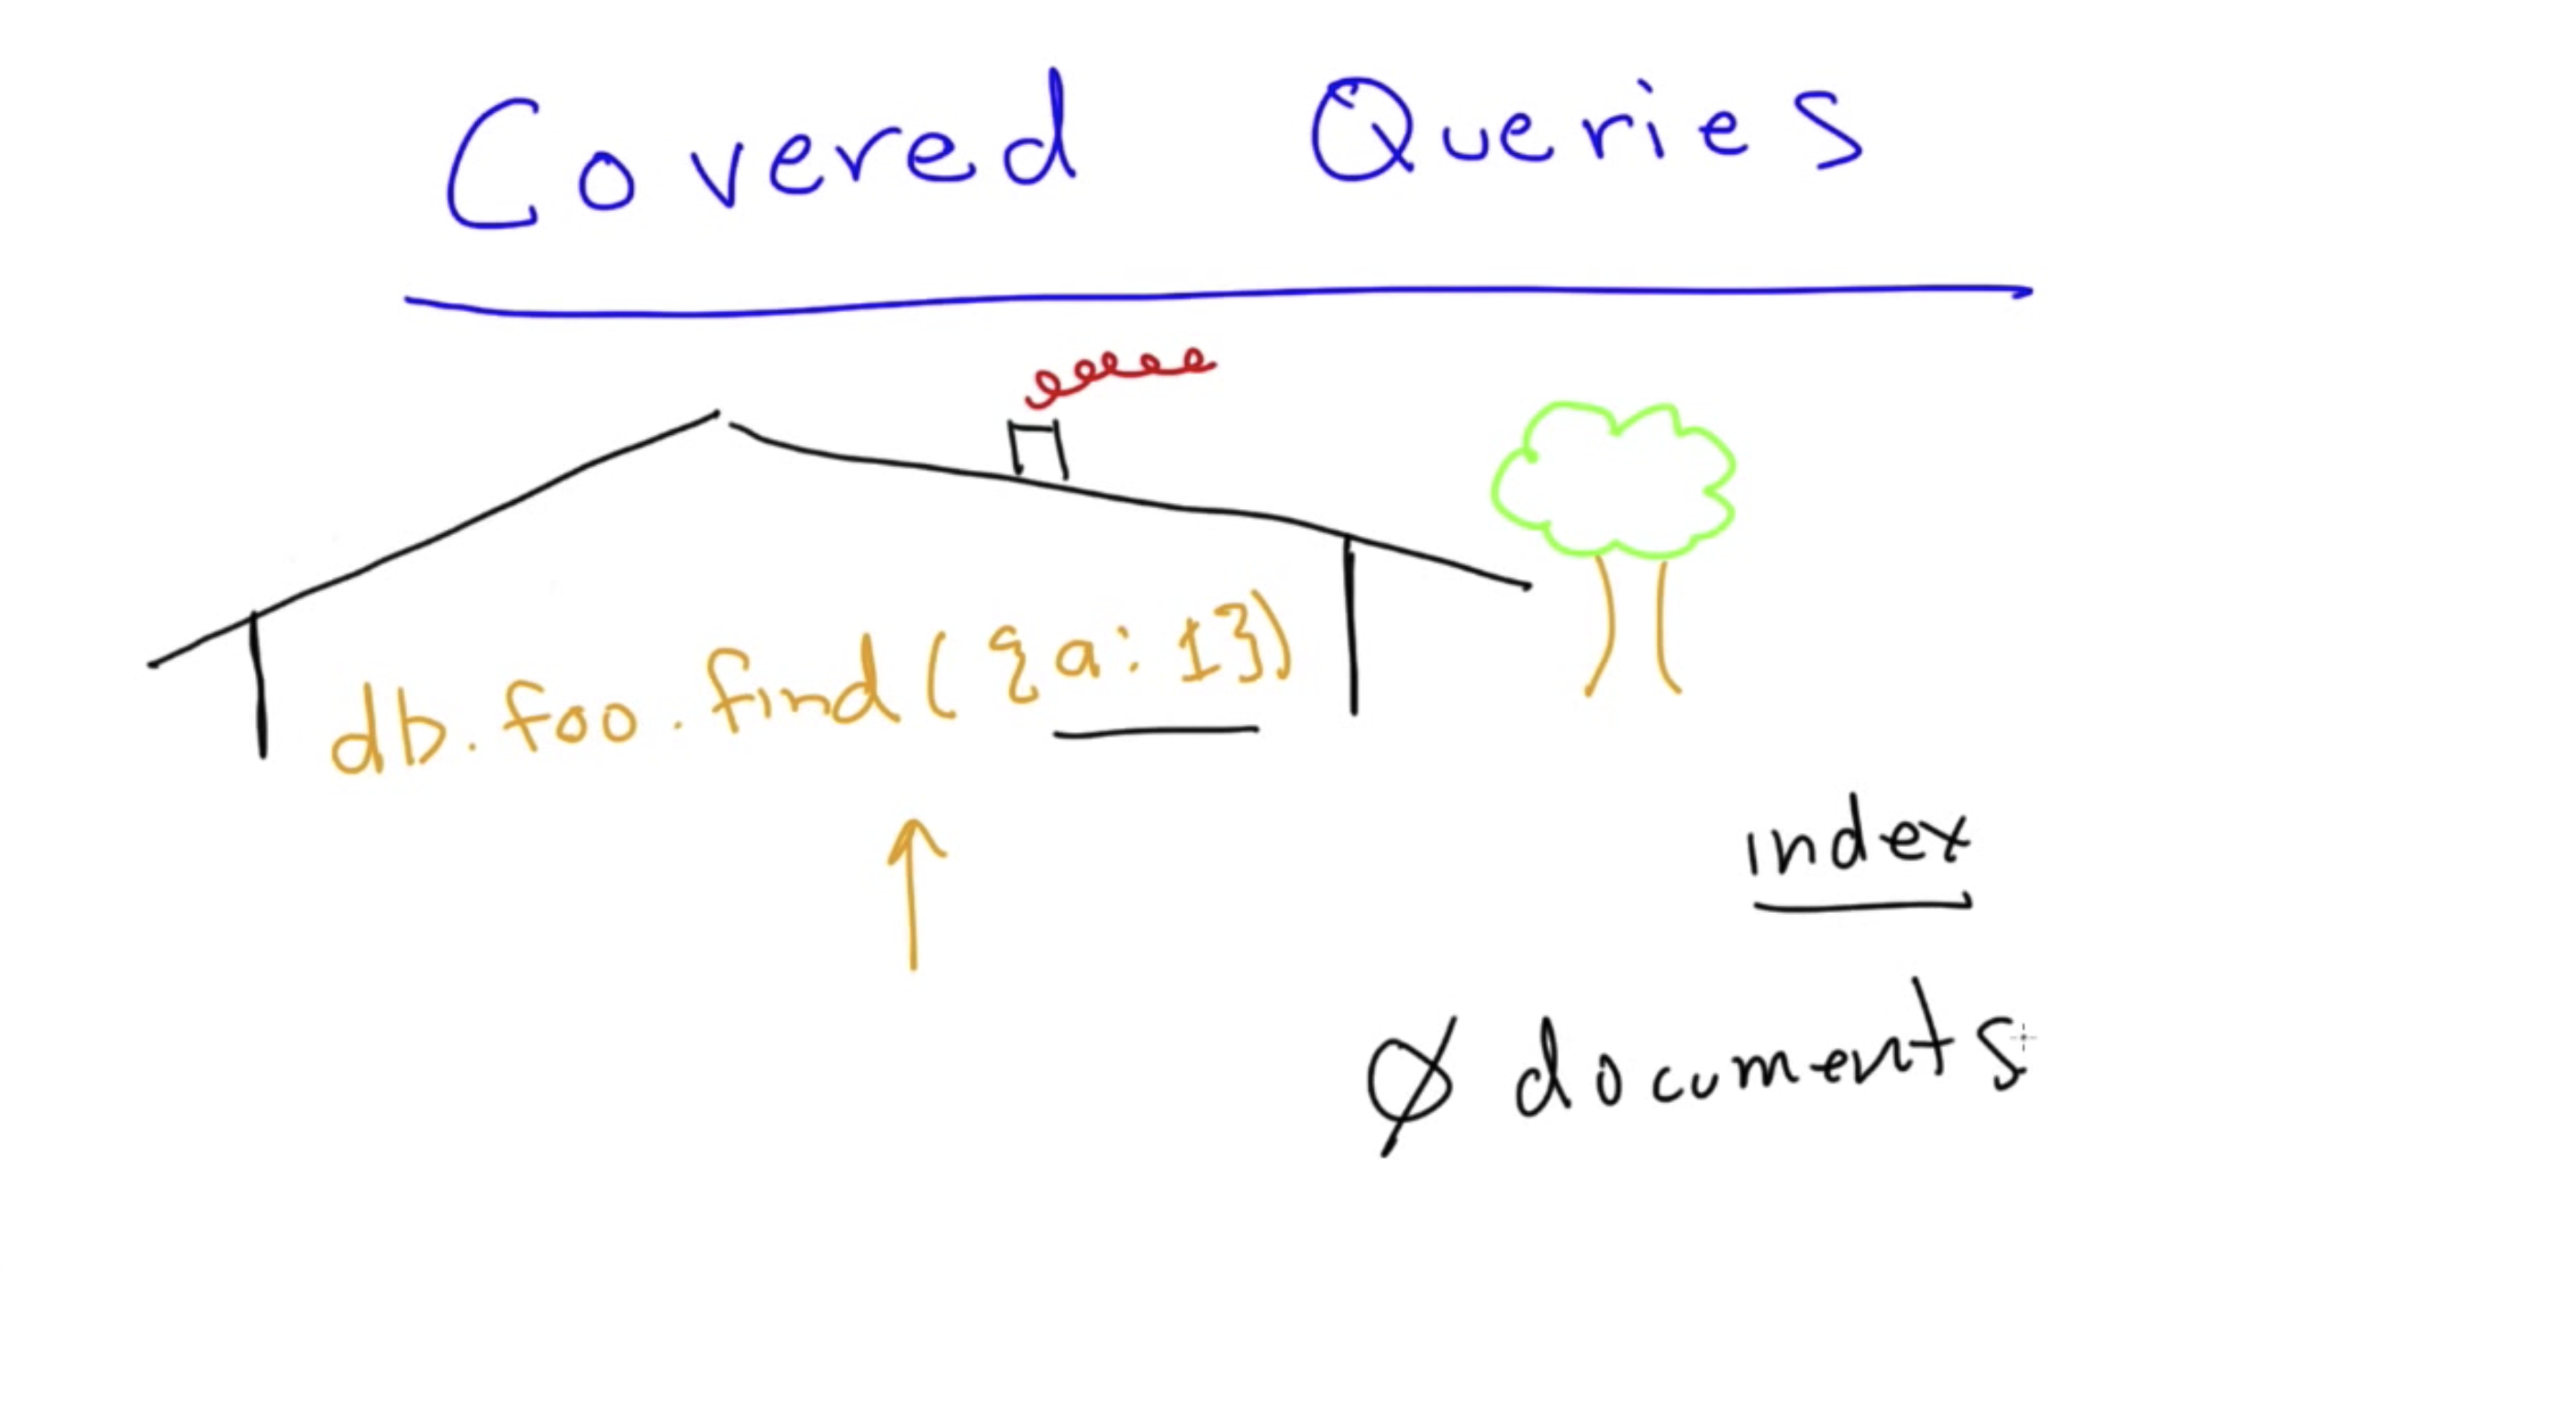 Covered Queries
db.foo.find({a:1})
index
Ø documents